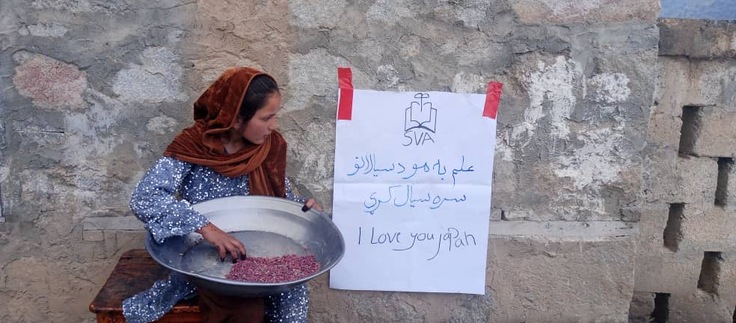 SVA
علم به مو د سیالانو
سره سیال کړي
I Love you japan